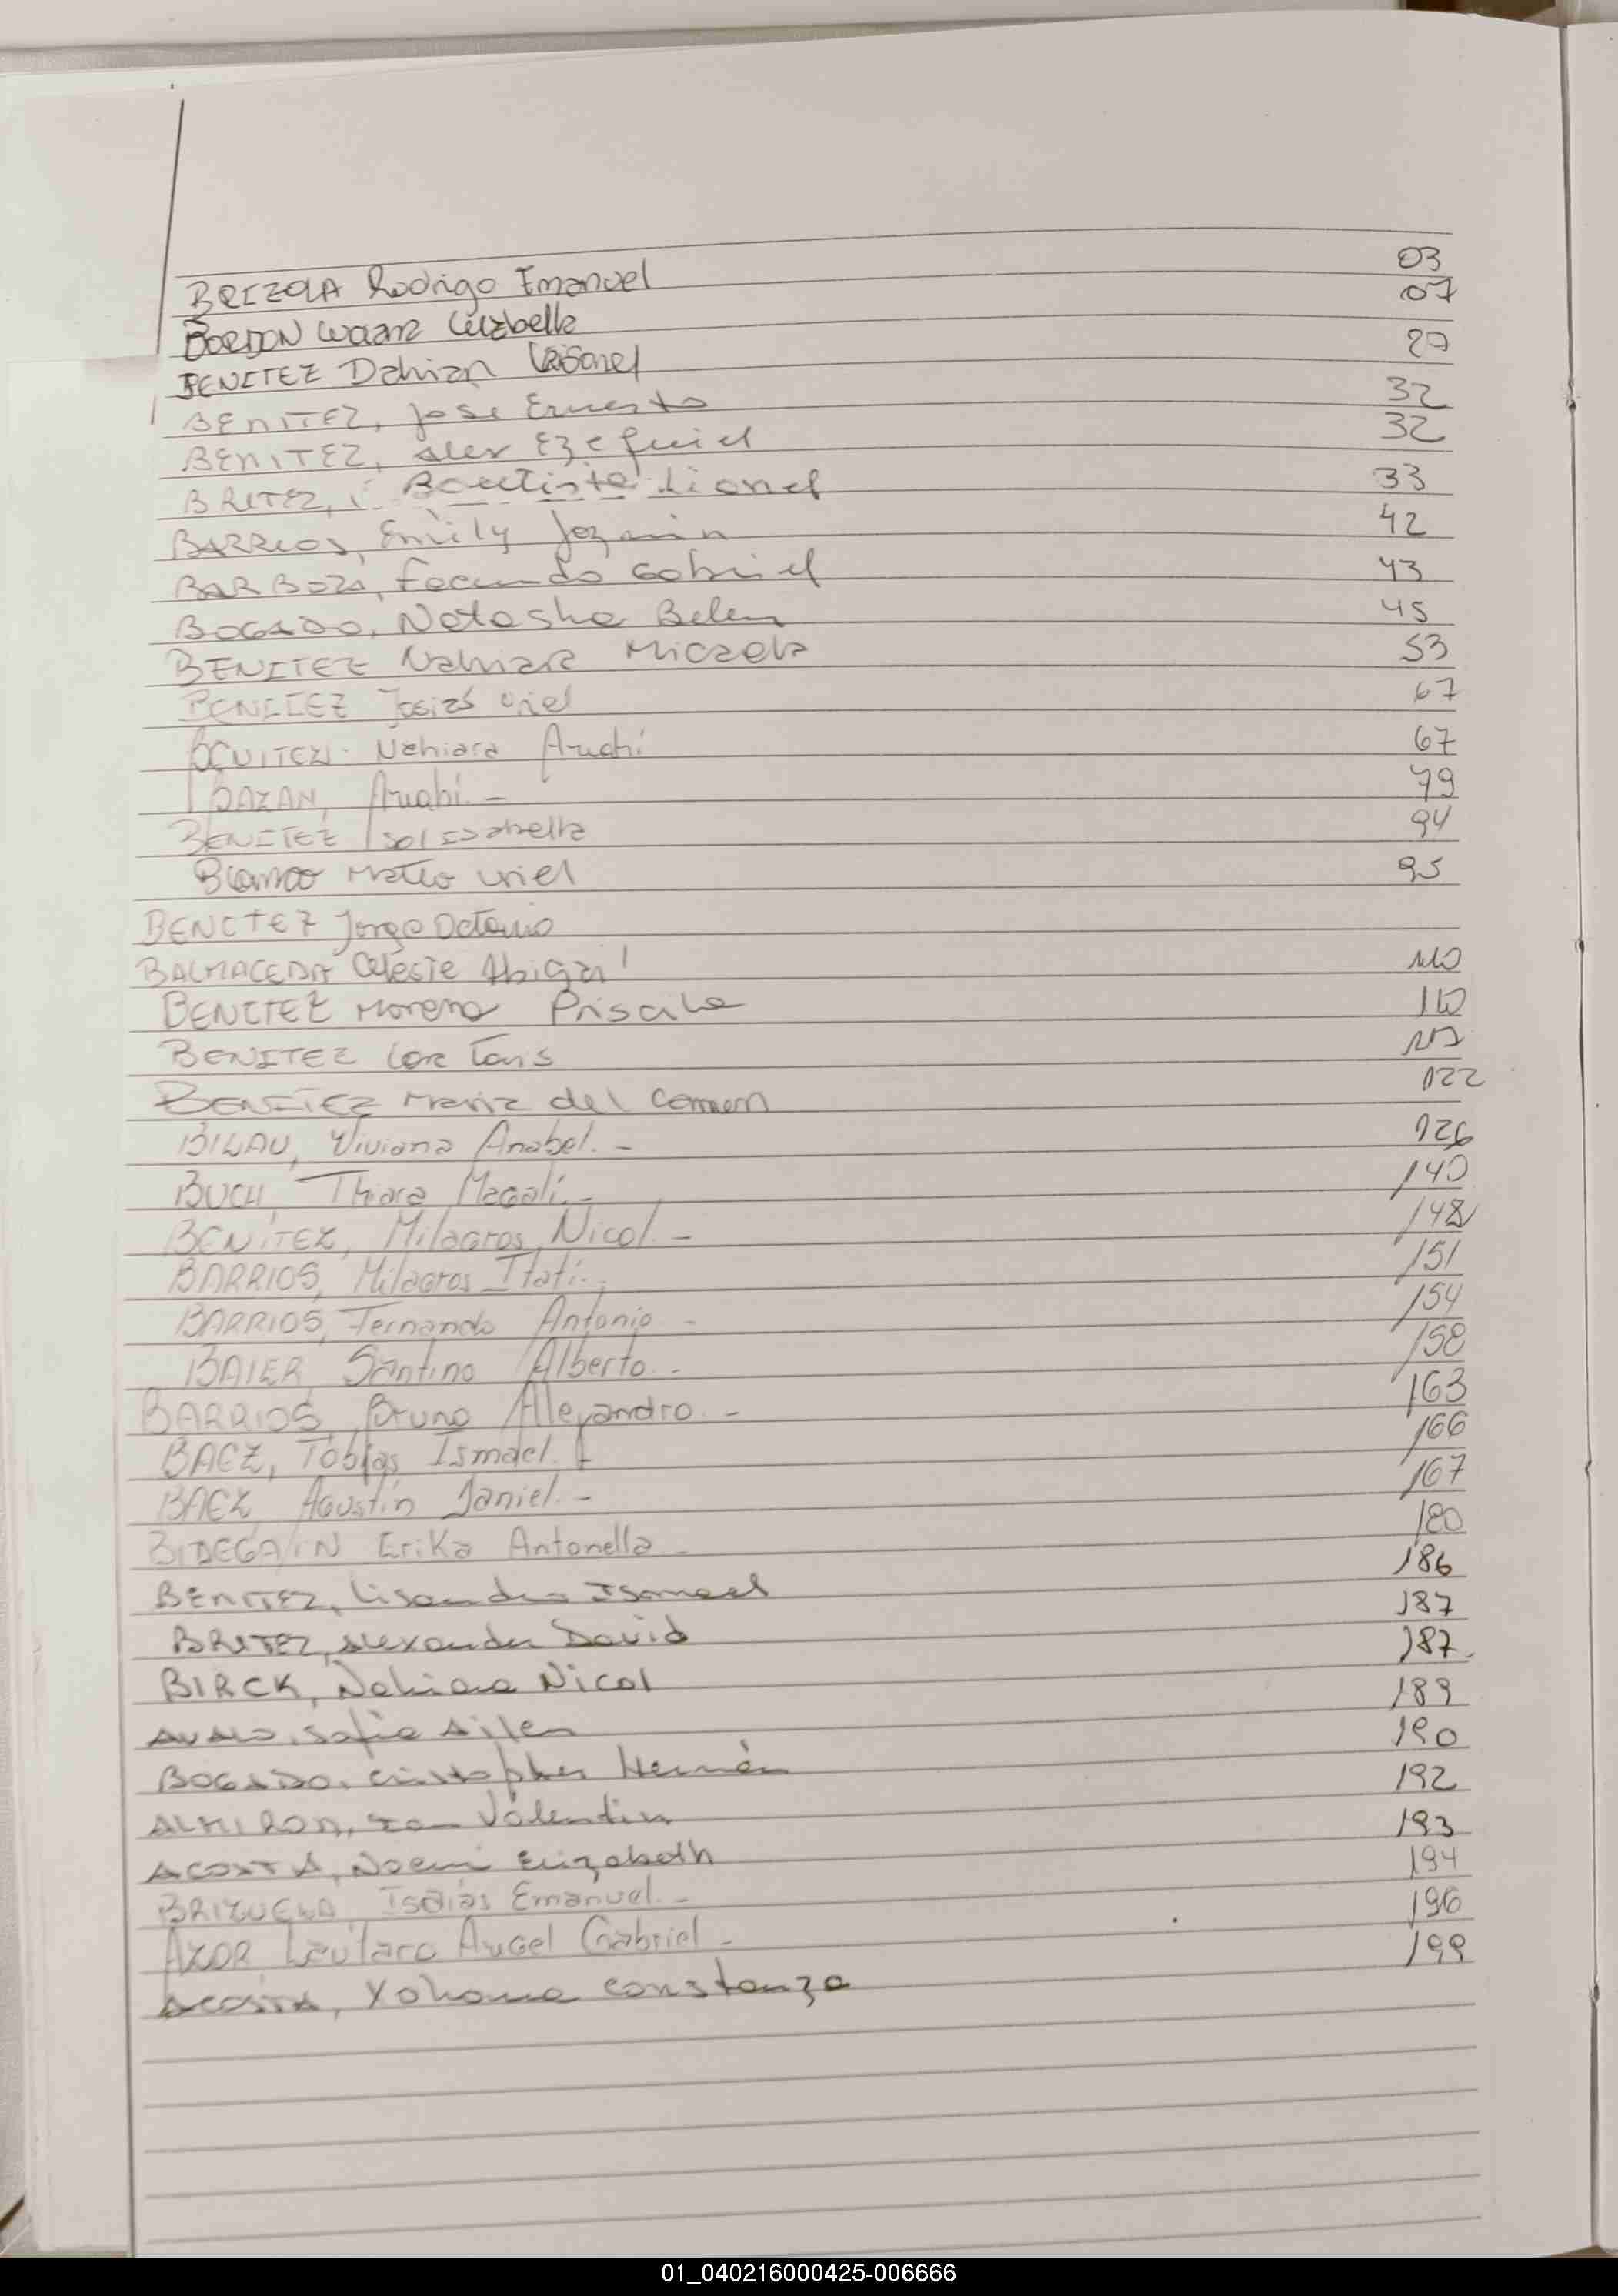 BRIZOLA Rodrigo Emanuel 03
BORDON Luzbella 07
BENITEZ Dahian 29
BENITEZ, Jose Ernesto 32
BENITEZ, Alex Ezequiel 32
BRITEZ, Bautista Lionel 33
BARRIOS, Emily Jazmin 42
BARBOZA, Facundo Gabriel 43
BOGADO, Natasha Belen 45
BENITEZ Nahiara Micaela 53
BENITEZ Josias Uriel 67
BENITEZ Nahiara Anahi 67
BAZAN, Anahi. - 79
BENITEZ Sol Isabella 94
Blanco Mateo Uriel 95
BENITEZ Jorge Octavio
BALMACEDA Celeste Abigail 110
BENITEZ Morena Priscila
BENITEZ
BENITEZ Maria del Carmen 122
BILAU, Viviana Anabel. - 126
BUCH, Thiara Magali. - 140
BENITEZ, Milagros Nicol. - 148
BARRIOS, Milagros Itati. 151
BARRIOS, Fernando Antonio - 154
BAIER Santino Alberto. - 158
BARRIOS, Bruno Alejandro. - 163
BAEZ, Tobias Ismael. 166
BAEZ Agustin Daniel. - 167
BIDEGAIN Erika Antonella - 180
BENITEZ, Lisandro Ismael 186
BRITEZ, Alexander David 187
BIRCK, Nahiara Nicol 187
AVALO, Sofia Ailen 189
BOGADO, Cristopher Hernán 190
ALMIRON, Ian Valentin 192
ACOSTA, Noemi Elizabeth 193
BRIZUELA Isaias Emanuel. - 194
AZOR Lautaro Angel Gabriel - 196
ACOSTA, Yohana Constanza 199
01_040216000425-006666